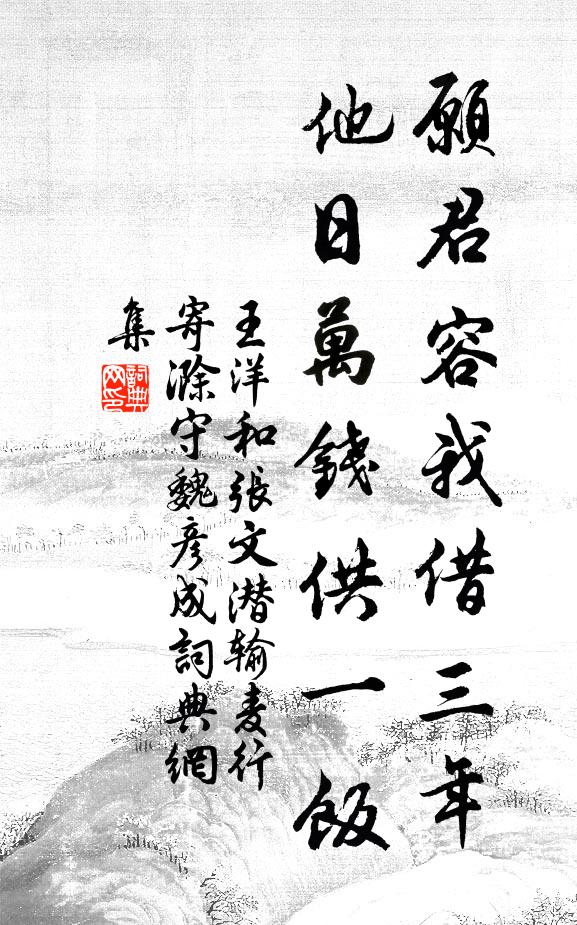 願君容我借三年
他日萬錢供一飯
王洋和張文潛输麦行
寄滁守魏彦成詞典網
集
詞典
网印